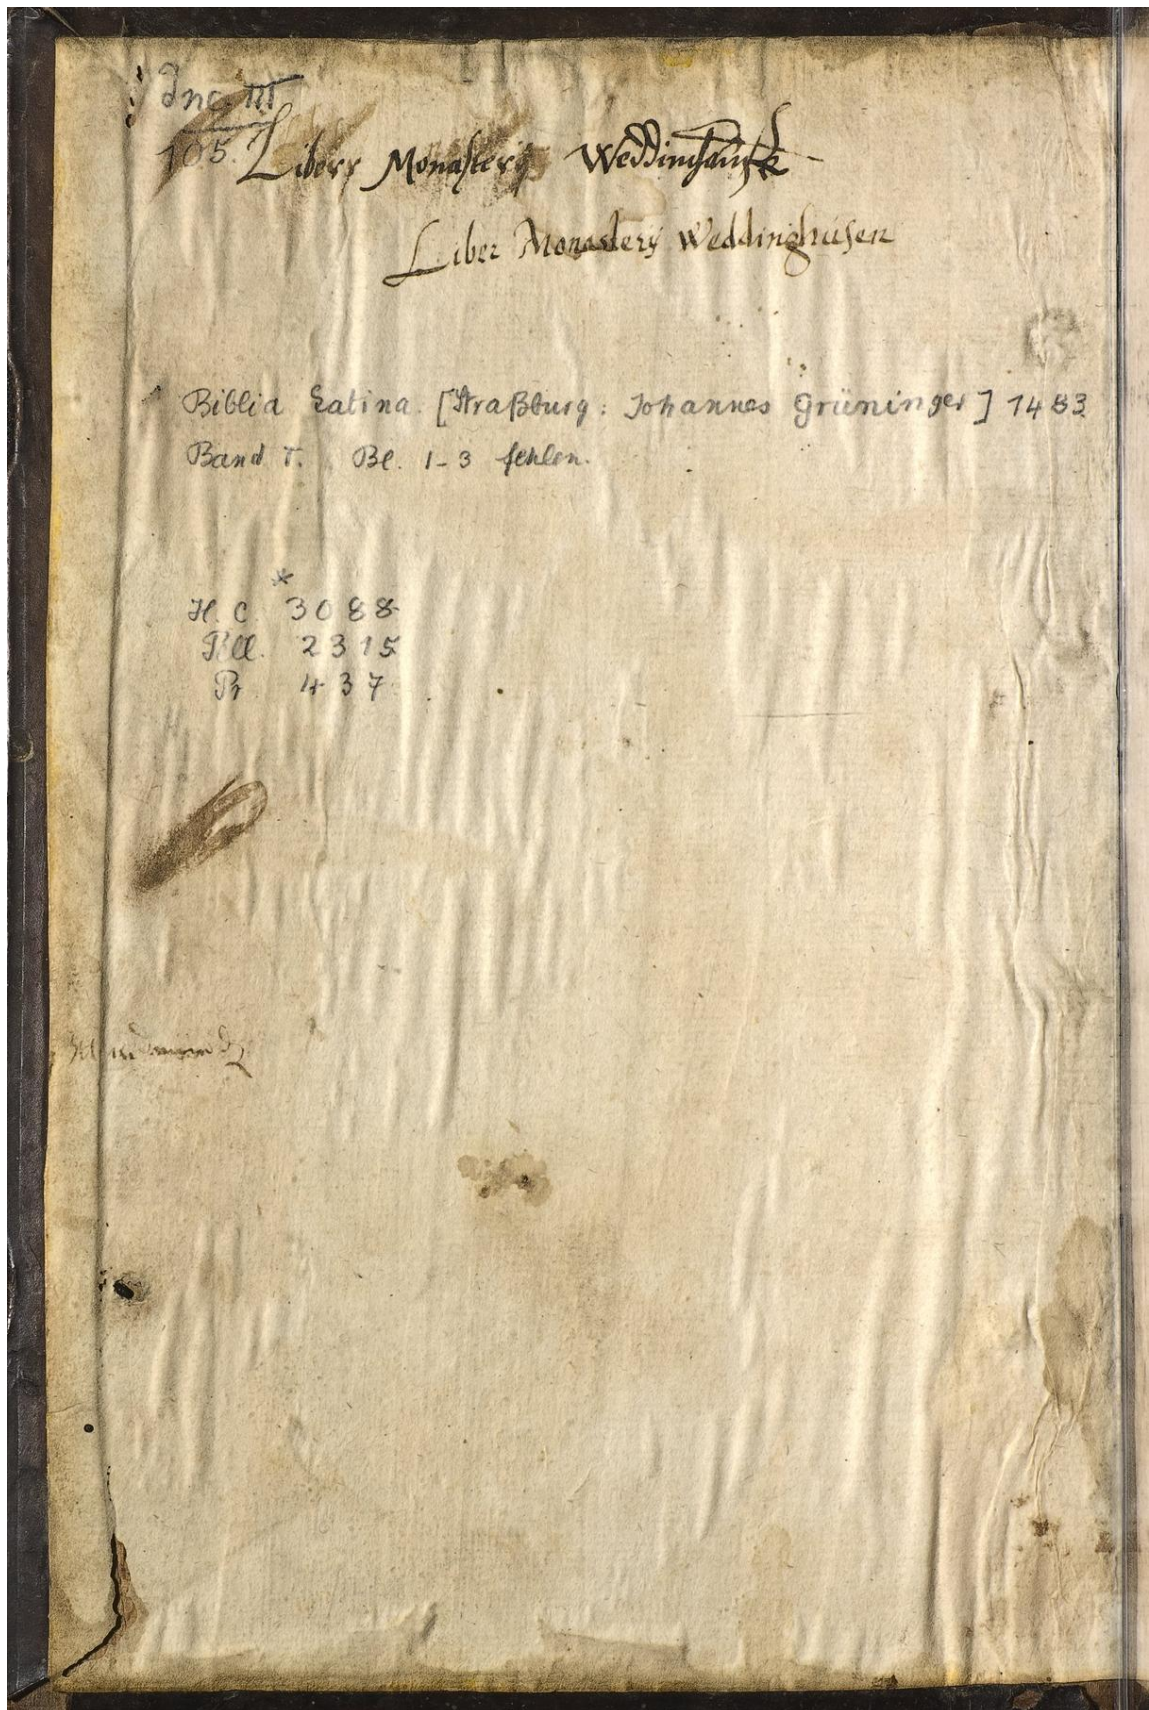 Inc. III
105.
Liber Monasterÿ
Liber Monasterÿ Weddinghusen
Biblia Latina. [Straßburg: Johannes Grüninger] 1483
Band I. Bl. 1-3 fehlen.
*
H. C. 3088
Pell. 2315
Pr. 437